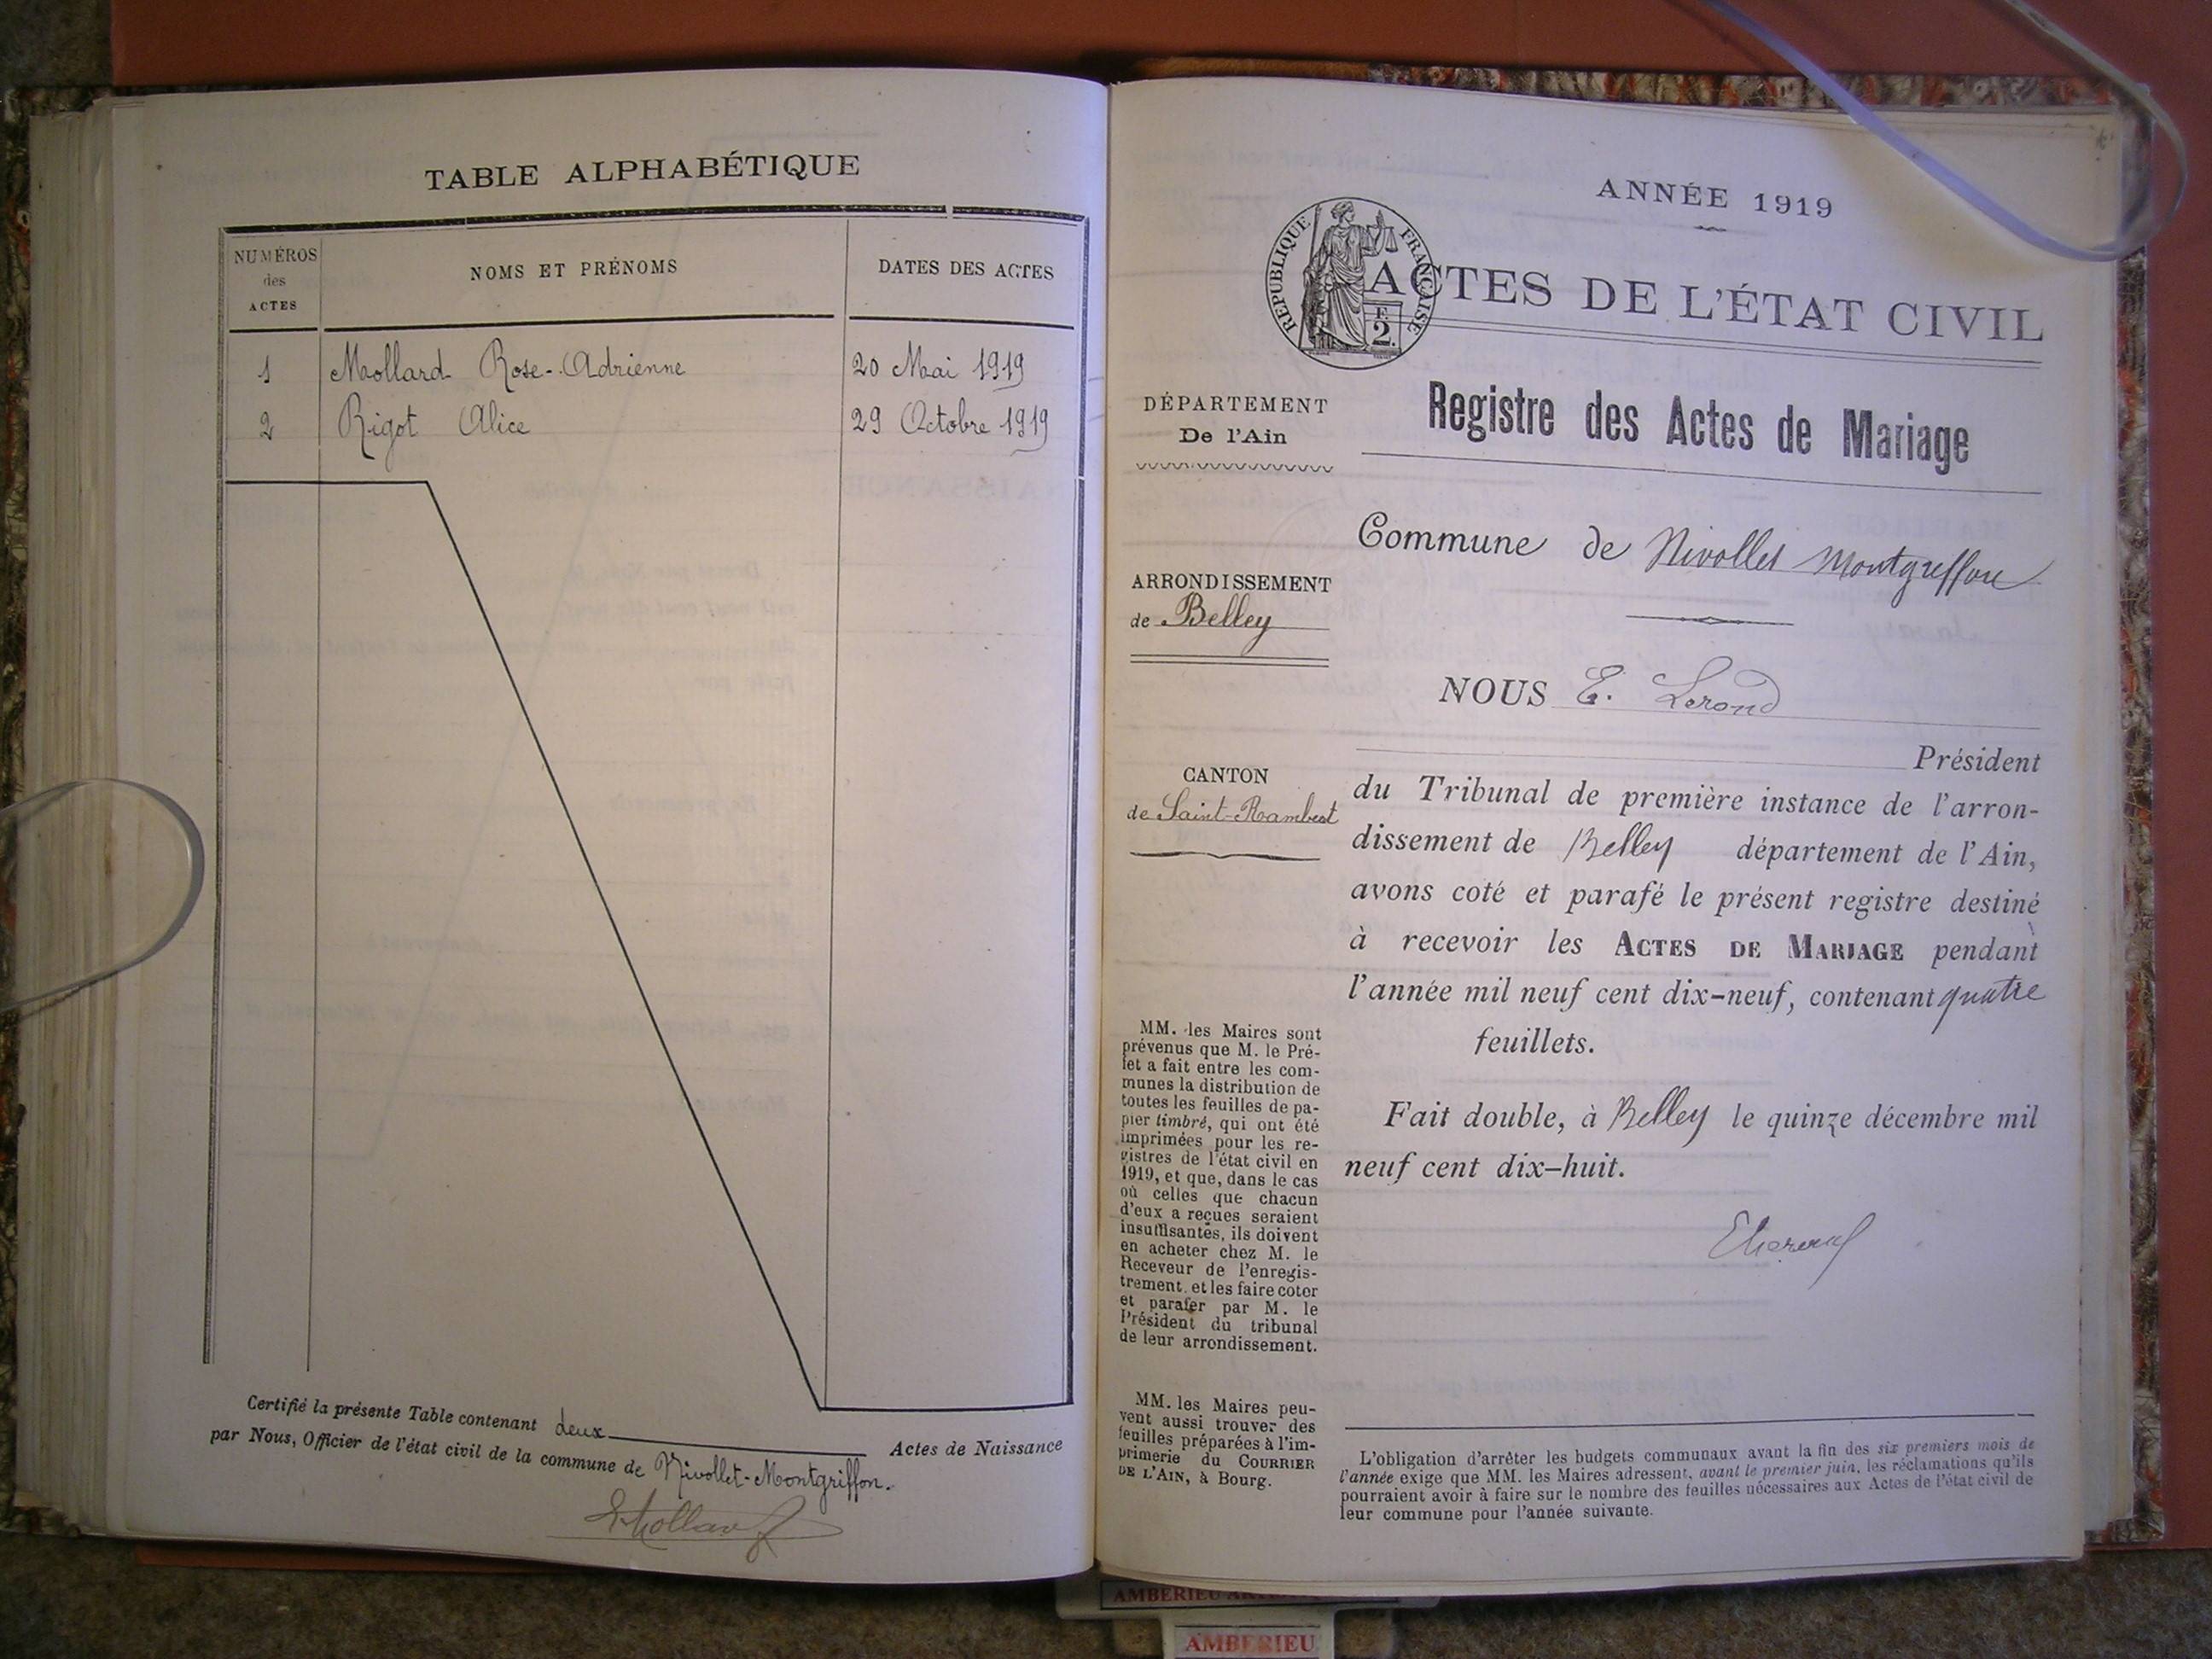 TABLE ALPHABÉTIQUE
NUMÉROS
des
ACTES
NOMS ET PRÉNOMS
DATES DES ACTES
1 Mollard Rose-Adrienne 20 Mai 1919
2 Rigot Alice 29 Octobre 1919
Certifié la présente Table contenant deux Actes de Naissance
par Nous, Officier de l'état civil de la commune de Nivollet-Montgriffon.
ANNÉE 1919
RÉPUBLIQUE FRANÇAISE
F.
2.
ACTES DE L'ÉTAT CIVIL
DÉPARTEMENT
De l'Ain
Registre des Actes de Mariage
Commune de Nivollet Montgriffon
ARRONDISSEMENT
de Belley
NOUS E. Lerond
Président
CANTON
de Saint-Rambert
du Tribunal de première instance de l'arron-
dissement de Belley département de l'Ain,
avons coté et parafé le présent registre destiné
à recevoir les ACTES DE MARIAGE pendant
l'année mil neuf cent dix-neuf, contenant quatre
feuillets.
Fait double, à Belley le quinze décembre mil
neuf cent dix-huit.
MM. les Maires sont
prévenus que M. le Pré-
fet a fait entre les com-
munes la distribution de
toutes les feuilles de pa-
pier timbré, qui ont été
imprimées pour les re-
gistres de l'état civil en
1919, et que, dans le cas
où celles que chacun
d'eux a reçues seraient
insuffisantes, ils doivent
en acheter chez M. le
Receveur de l'enregis-
trement, et les faire coter
et parafer par M. le
Président du tribunal
de leur arrondissement.
MM. les Maires peu-
vent aussi trouver des
feuilles préparées à l'im-
primerie du COURRIER
DE L'AIN, à Bourg.
L'obligation d'arrêter les budgets communaux avant la fin des six premiers mois de
l'année exige que MM. les Maires adressent, avant le premier juin, les réclamations qu'ils
pourraient avoir à faire sur le nombre des feuilles nécessaires aux Actes de l'état civil de
leur commune pour l'année suivante.
AMBERIEU
AMBERIEU